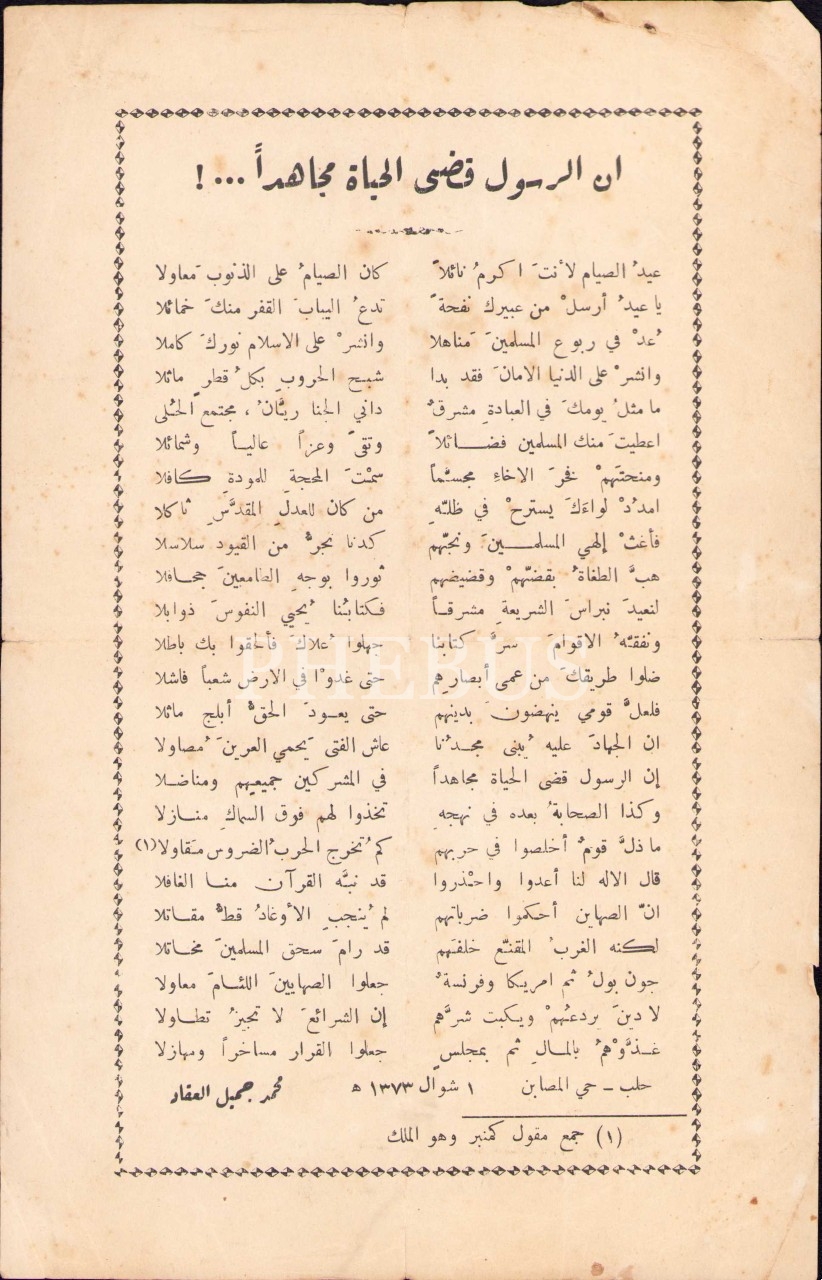 ان الرسول قضى الحياة مجاهداً ... !
عيدُ الصيام لأنتَ اكرمُ نائلاً كان الصيامُ على الذنوب معاولا
يا عيدُ أرسلْ من عبيرك نفحةً تدعُ اليبابَ القفر منكَ خمائلا
عُدْ في ربوع المسلمينَ مَناهلا وانشرْ على الاسلام نوركَ كاملا
وانشرْ على الدنيا الامانَ فقد بدا شبح الحروبِ بكلُ قطرٍ ماثلا
ما مثلُ يومكَ في العبادةِ مشرقٌ داني الجنا ريَّانُ، مجتمع الحُلى
اعطيتَ منك المسلمين فضائلاً وتقىً وعزاً عالياً وشمائلا
ومنحتَهمْ فخرَ الاخاءِ مجسّماً سمْتَ المحجةِ للمودة كافلا
امددْ لواءَكَ يسترحْ في ظلّهِ من كان للعدلِ المقدَّسِ ثاكلا
فأغثْ إلهي المسلمينَ ونجّهم كدنا نجرُّ من القيود سلاسلا
هبَّ الطغاةُ بقضّهمْ وقضيضهم ثوروا بوجهِ الطامعينَ جحافلا
لنعيدَ نبراسَ الشريعةِ مشرقاً فكتابُنا يُحيي النفوسَ ذوابلا
ونفقّهُ الاقوامَ سرَّ كتابنا جهلوا عُلاكَ فألحقوا بك باطلا
ضلوا طريقكَ من عمى أبصارِهم حتى غدوْا في الارض شعباً فاشلا
فلعلَّ قومي ينهضونَ بدينهم حتى يعودَ الحقُّ أبلج ماثلا
ان الجهادَ عليه يُبنى مجدُنا عاش الفتى يَحمي العرينَ مُصاولا
إن الرسول قضى الحياة مجاهداً في المشركين جميعِهم ومناضلا
وكذا الصحابةُ بعده في نهجهِ تخذوا لهم فوق السماكِ منازلا
ما ذلَّ قومٌ أخلصوا في حربهم كم تُخرج الحربُ الضروس مَقاولا (١)
قال الاله لنا أعدوا واحْذروا قد نبَّه القرآن منا الغافلا
انّ الصهاين أحكموا ضرباتهم لم يُنجبِ الأوغادُ قطُّ مقاتلا
لكنه الغربُ المقنّع خلفَهم قد رامَ سحق المسلمينَ مخاتلا
جون بولُ ثم امريكا وفرنسةٌ جعلوا الصهايينَ اللئامَ معاولا
لا دينَ يردعُهمْ ويكبت شرَّهم إن الشرائعَ لا تجيزُ تطاولا
غذَّوْهمُ بالمالِ ثم بمجلسٍ جعلوا القرار مساخراً ومهازلا
حلب - حي المصابن ١ شوال ١٣٧٣ ھ محمد جميل العقاد
(١) جمع مقول كمنبر وهو الملك
PHEBUS